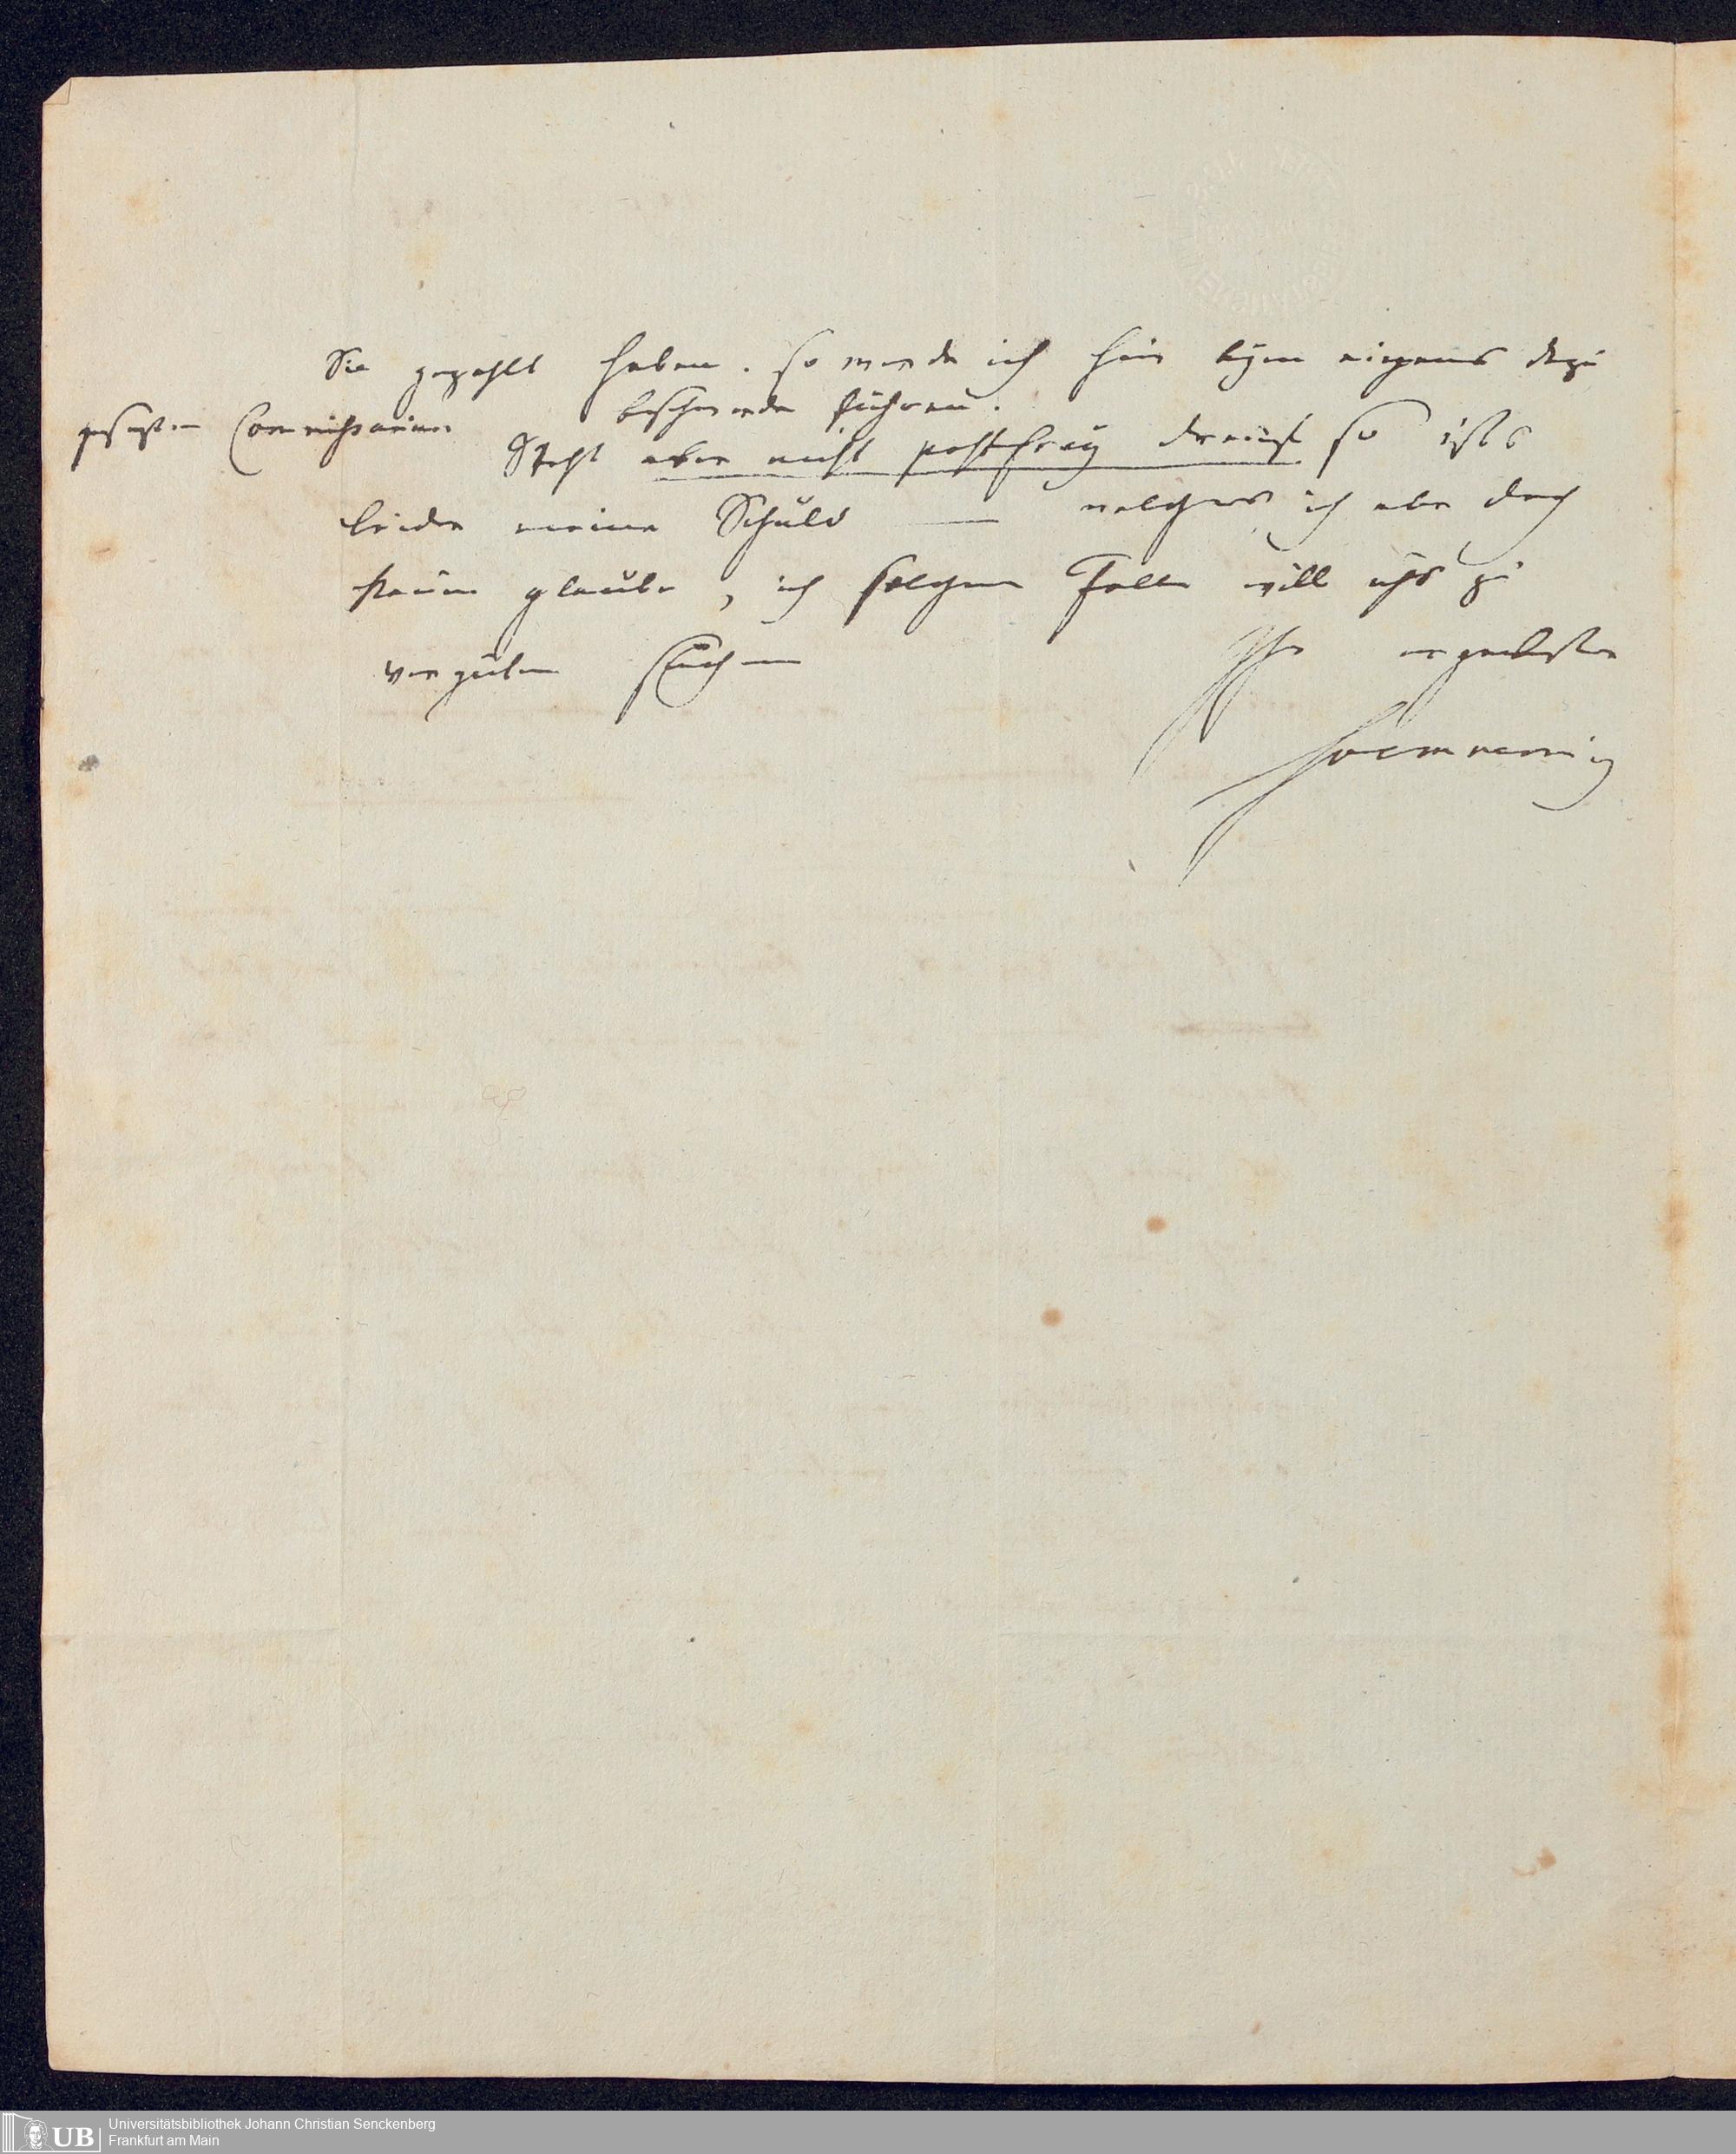 Sie gezahlt haben. so werde ich hier beym eigens dazu
gesezten Commissarius beschwerde führen.
Steht aber nicht postfrey drauf so ists
leider meine Schuld — welches ich aber doch
kaum glaube, in solchem Falle will ichs zu
vergüten suchen
Ihr ergebenster
Soemmerring
Universitätsbibliothek Johann Christian Senckenberg
Frankfurt am Main
UB